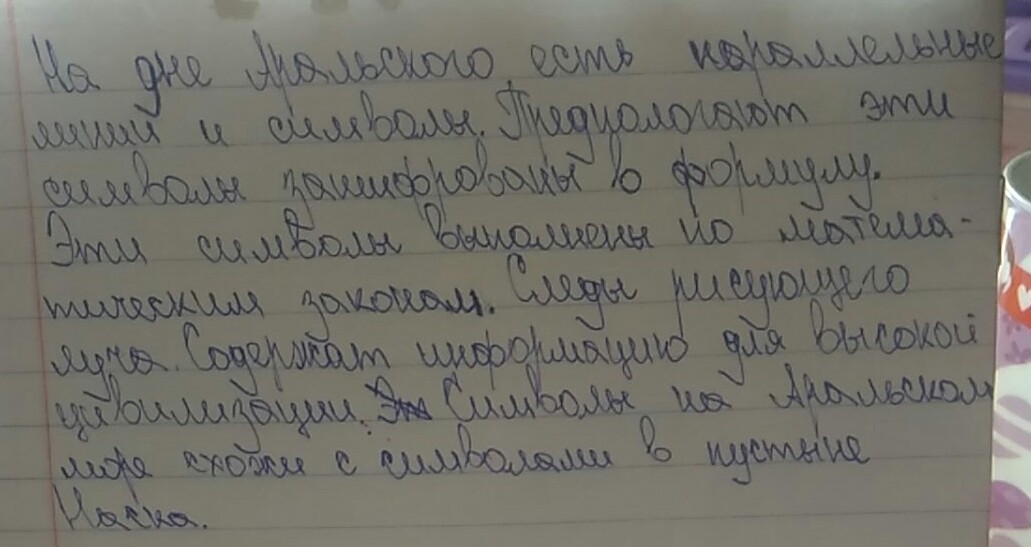 На дне Аральского есть параллельные
линии и символы. Предполагают эти
символы зашифрованы в формулу.
Эти символы выполнены по матема-
тическим законам. Следы рисующего
луча. Содержат информацию для высокой
цивилизации. Эт Символы на Аральском
море схожи с символами в пустыне
Наска.